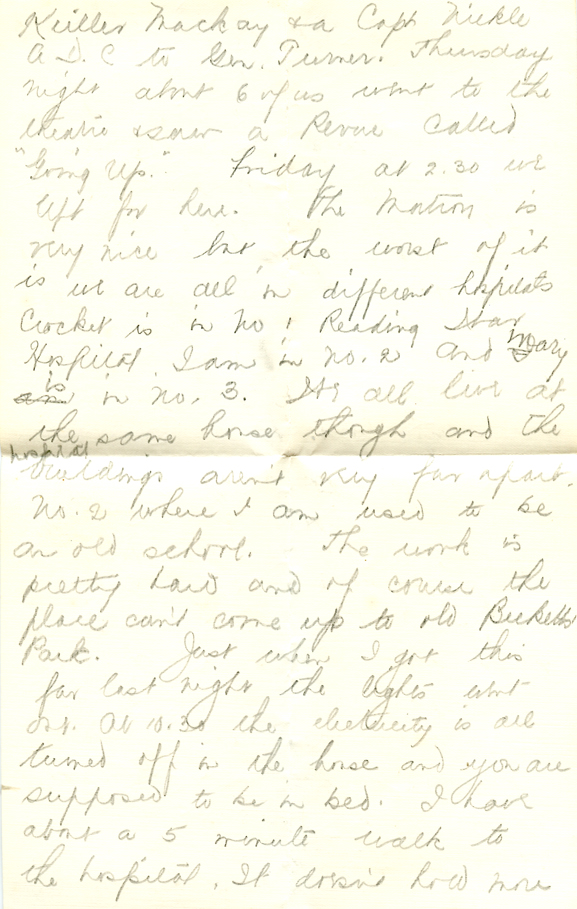 Keiller Mackay & a Capt Nickle
A.D.C to Gen. Turner. Thursday
night about 6 of us went to the
theatre & saw a Revue called
"Going Up." Friday at 2.30 we
left for here. The Matron is
very nice but the worst of it
is we are all in different hospitals
Crocket is in No 1 Reading War
Hospital, I am in No. 2 and Mary
is in No. 3. We all live at
the same house though and the
hospital
buildings aren't very far apart.
No. 2 where I am used to be
an old school. The work is
pretty hard and of course the
place can't come up to old Becketts
Park. Just when I got this
far last night the lights went
out. At 10.30 the electricity is all
turned off in the house and you are
supposed to be in bed. I have
about a 5 minute walk to
the hospital. It doesn't hold more